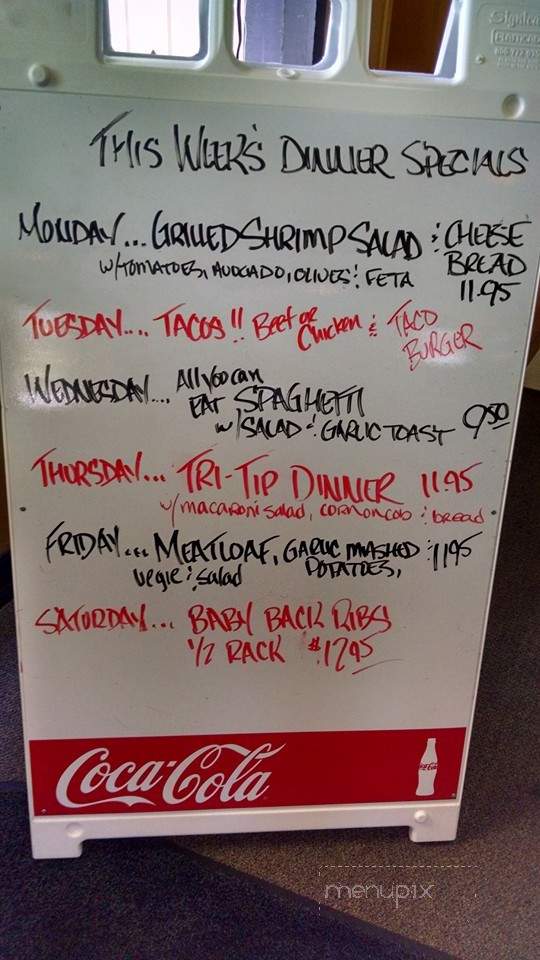 THIS WEEK'S DINNER SPECIALS
MONDAY... GRILLED SHRIMP SALAD & CHEESE BREAD
W/TOMATOES, AVOCADO, OLIVES & FETA 11.95
TUESDAY.... TACOS!! Beef or Chicken & TACO BURGER
WEDNESDAY.... All you can
EAT SPAGHETTI
W/SALAD & GARLIC TOAST 9.50
THURSDAY... TRI-TIP DINNER 11.95
w/macaroni salad, corn on cob & bread
FRIDAY.... MEATLOAF, GARLIC MASHED POTATOES, 11.95
vegie & salad
SATURDAY... BABY BACK RIBS
1/2 RACK $12.95
Coca-Cola
menupix